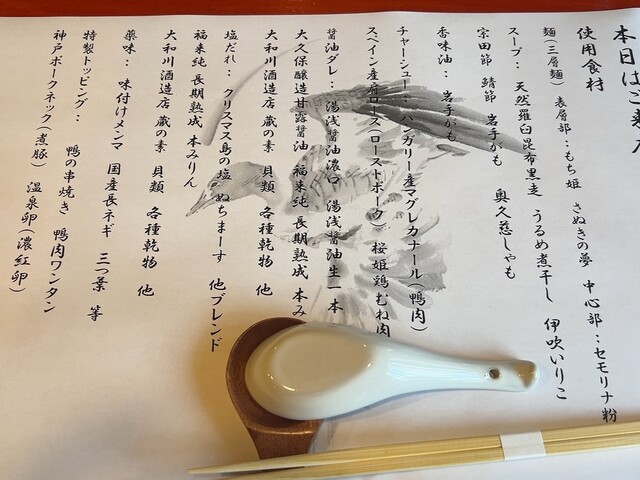 本日はご来
使用食材
麺(三層麺) 表層部:もち姫 さぬきの夢 中心部:セモリナ粉
スープ: 天然羅臼昆布黒走 うるめ煮干し 伊吹いりこ
宗田節 鯖節 岩手がも 奥久慈しゃも
香味油: 岩手がも
チャーシュー: ハンガリー産マグレカナール(鴨肉)
スペイン産肩ロース(ローストポーク) 桜姫鶏むね肉
醤油ダレ: 湯浅醤油濃口 湯浅醤油生一本
大久保醸造甘露醤油 福来純長期熟成 本み
大和川酒造店 蔵の素 貝類 各種乾物 他
塩だれ: クリスマス島の塩 ぬちまーす 他ブレンド
福来純長期熟成 本みりん
大和川酒造店 蔵の素 貝類 各種乾物 他
薬味: 味付けメンマ 国産長ネギ 三つ葉 等
特製トッピング: 鴨の串焼き 鴨肉ワンタン
神戸ポークネック(煮豚) 温泉卵(濃紅卵)